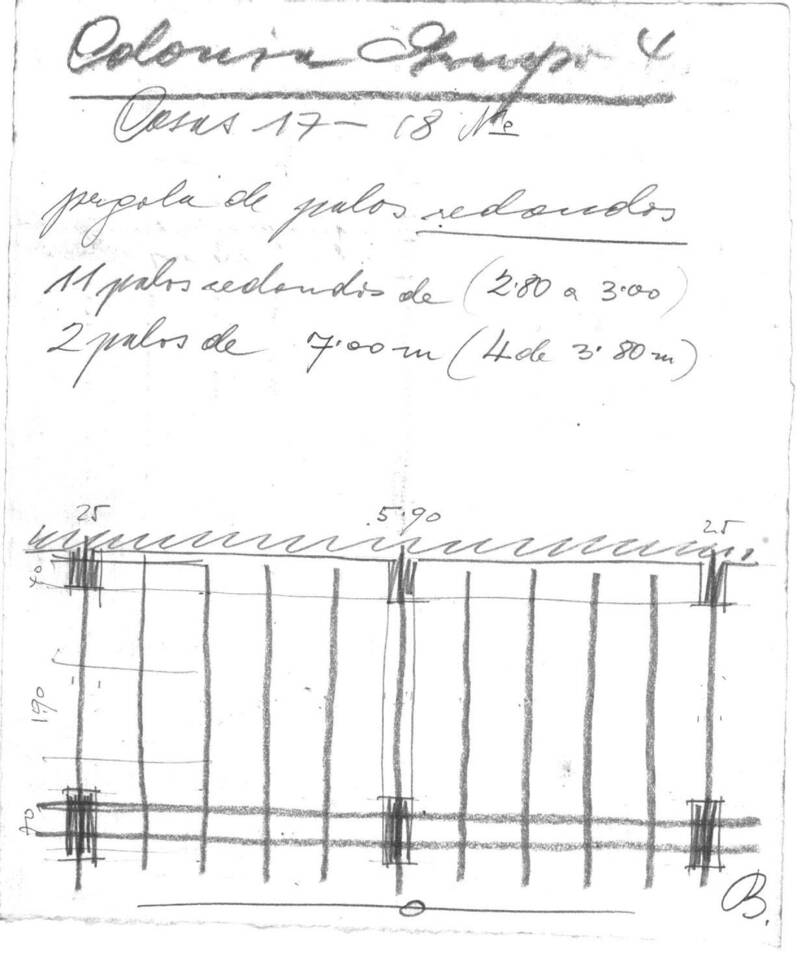 Colonia Grupo 4
Casas 17 - 18 Nº
pergola de palos redondos
11 palos redondos de (2.80 a 3.00)
2 palos de 7.00 m (4 de 3.80 m)
25 5.90 25
40
190
70
B.